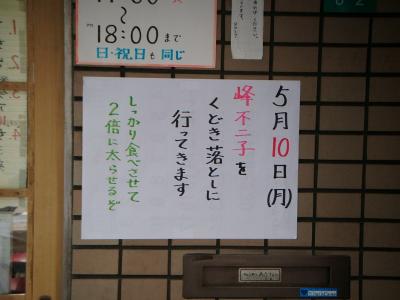 〜
PM 18:00まで
日・祝日も同じ
5月10日(月)
峰不二子を
くどき落としに
行ってきます
しっかり食べさせて
2倍に太らせるぞ